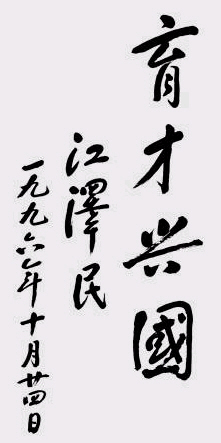 育才兴國
江澤民
一九九六年十月廿四日